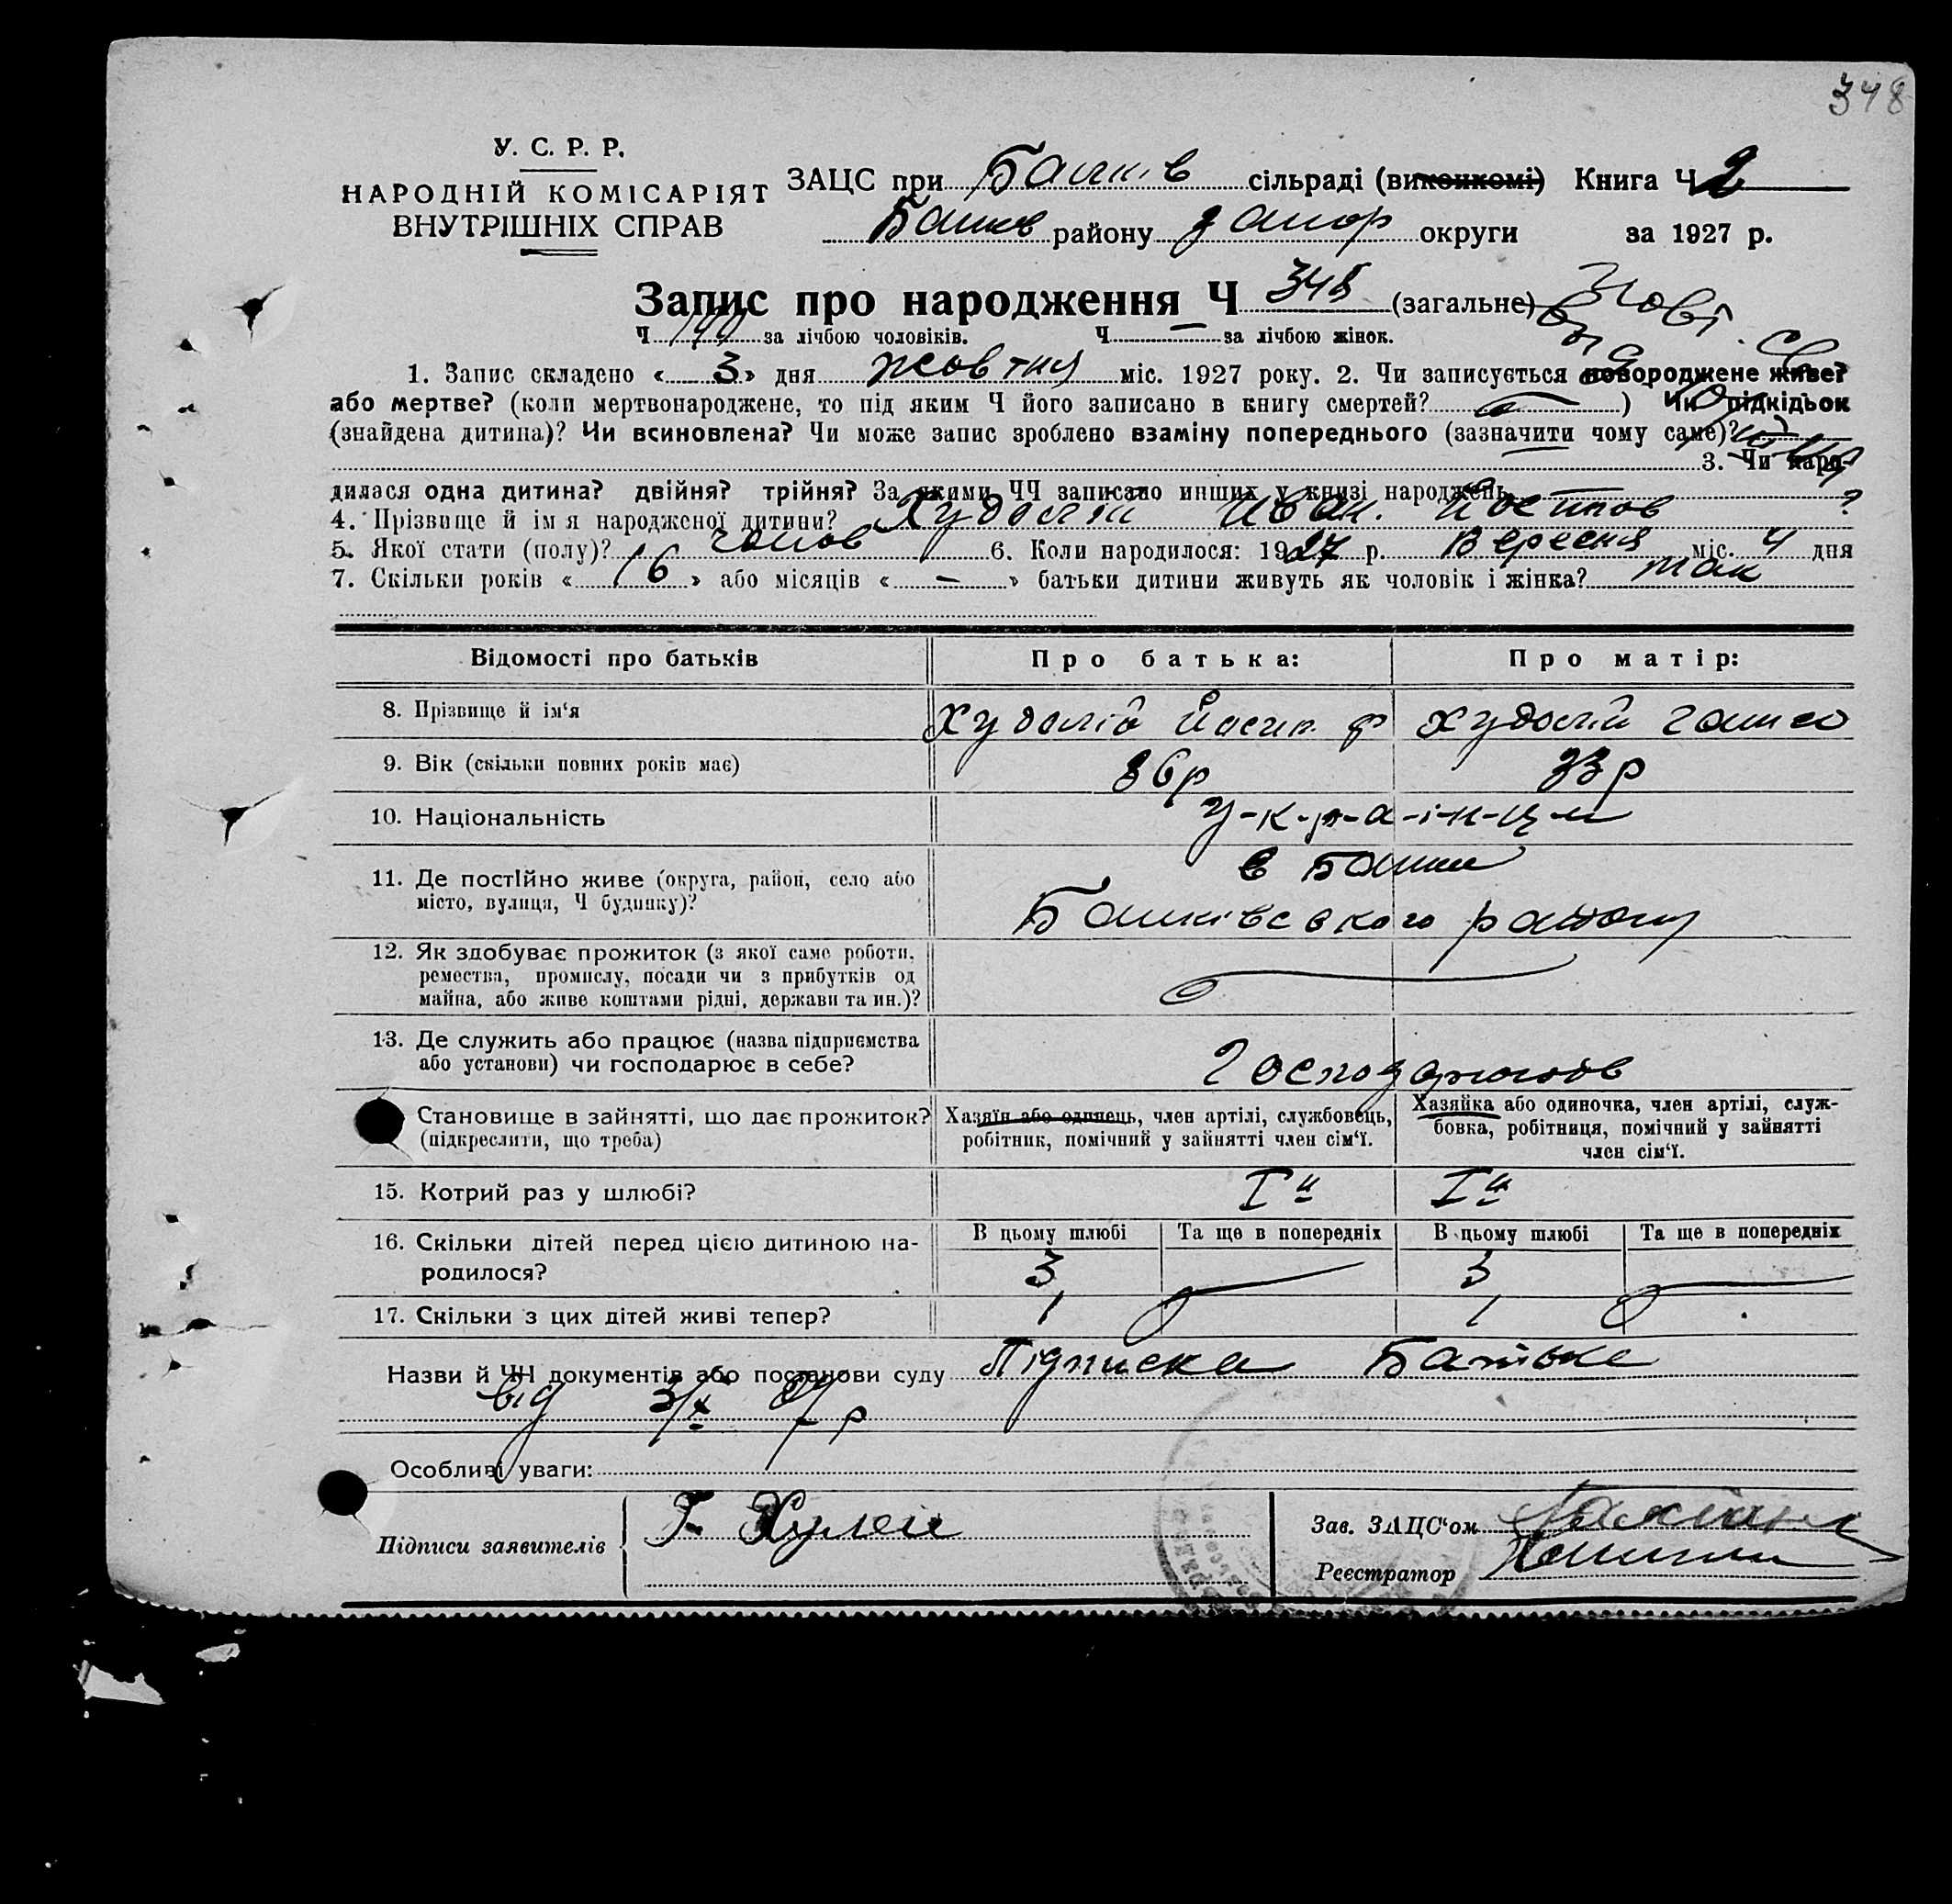 348
У. С. Р. Р.
НАРОДНІЙ КОМІСАРІЯТ
ВНУТРІШНІХ СПРАВ
ЗАЦС при сільраді (виконкомі) Книга Ч 2
району округи за 1927 р.
Запис про народження Ч 348 (загальне)
Ч 190 за лічбою чоловіків. Ч — за лічбою жінок.
1. Запис складено « 3 » дня жовтня міс. 1927 року. 2. Чи записується новороджене живе?
або мертве? (коли мертвонароджене, то під яким Ч його записано в книгу смертей? ) Чи підкідьок
(знайдена дитина)? Чи всиновлена? Чи може запис зроблено взаміну попереднього (зазначити чому саме)?
3. Чи наро-
дилася одна дитина? двійня? трійня? За якими ЧЧ записано инших у книзі народжень — ?
4. Прізвище й ім я народженої дитини? Худолій Іван.
5. Якої стати (полу)? чолов 6. Коли народилося: 1927 р. Вересня міс. 4 дня
7. Скільки років « 16 » або місяців « — » батьки дитини живуть як чоловік і жінка? так
Відомості про батьків Про батька: Про матір:
8. Прізвище й ім‘я Худолій Йосип Ф Худолій
9. Вік (скільки повних років має) 36р 33р
10. Національність у-к-р-а-ї-н-ц-и
11. Де постійно живе (округа, район, село або
місто, вулиця, Ч будинку)?
району
12. Як здобуває прожиток (з якої саме роботи,
ремества, промислу, посади чи з прибутків од
майна, або живе коштами рідні, держави та ин.)?
13. Де служить або працює (назва підприємства
або установи) чи господарює в себе?
Становище в зайнятті, що дає прожиток?
(підкреслити, що треба)
Хазяїн або одинець, член артілі, службовець,
робітник, помічний у зайнятті член сім‘ї.
Хазяйка або одиночка, член артілі, служ-
бовка, робітниця, помічний у зайнятті
член сім‘ї.
15. Котрий раз у шлюбі? Iй Iй
16. Скільки дітей перед цією дитиною на-
родилося?
В цьому шлюбі Та ще в попередніх В цьому шлюбі Та ще в попередніх
3 3
17. Скільки з цих дітей живі тепер? 1 1
Назви й ЧЧ документів або постанови суду Підписка Батька
від 3/X 27 р
Особливі уваги:
Підписи заявителів
Зав. ЗАЦС‘ом
Реєстратор